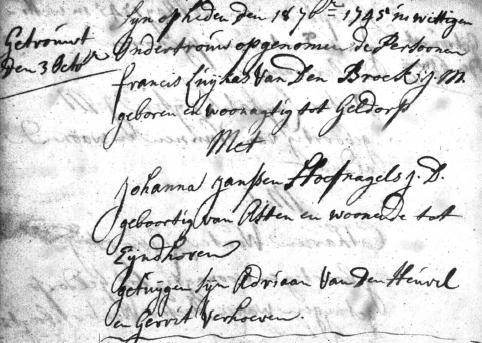 Getrouwt
den 3 Octob
Syn op heden den 18 7br 1745 in wittigen
Ondertrouw opgenomen de Persoonen
Francis Luijkas Van Den Broek j: M:
geboren en woonagtig tot Geldorp
Met
Johanna Janssen Hoefnagels j. D.
geboortig van Asten en woonende tot
Eijndhoven
getuijgen syn Adriaan Van Den Heuvel
en Gerrit Verhoeven.